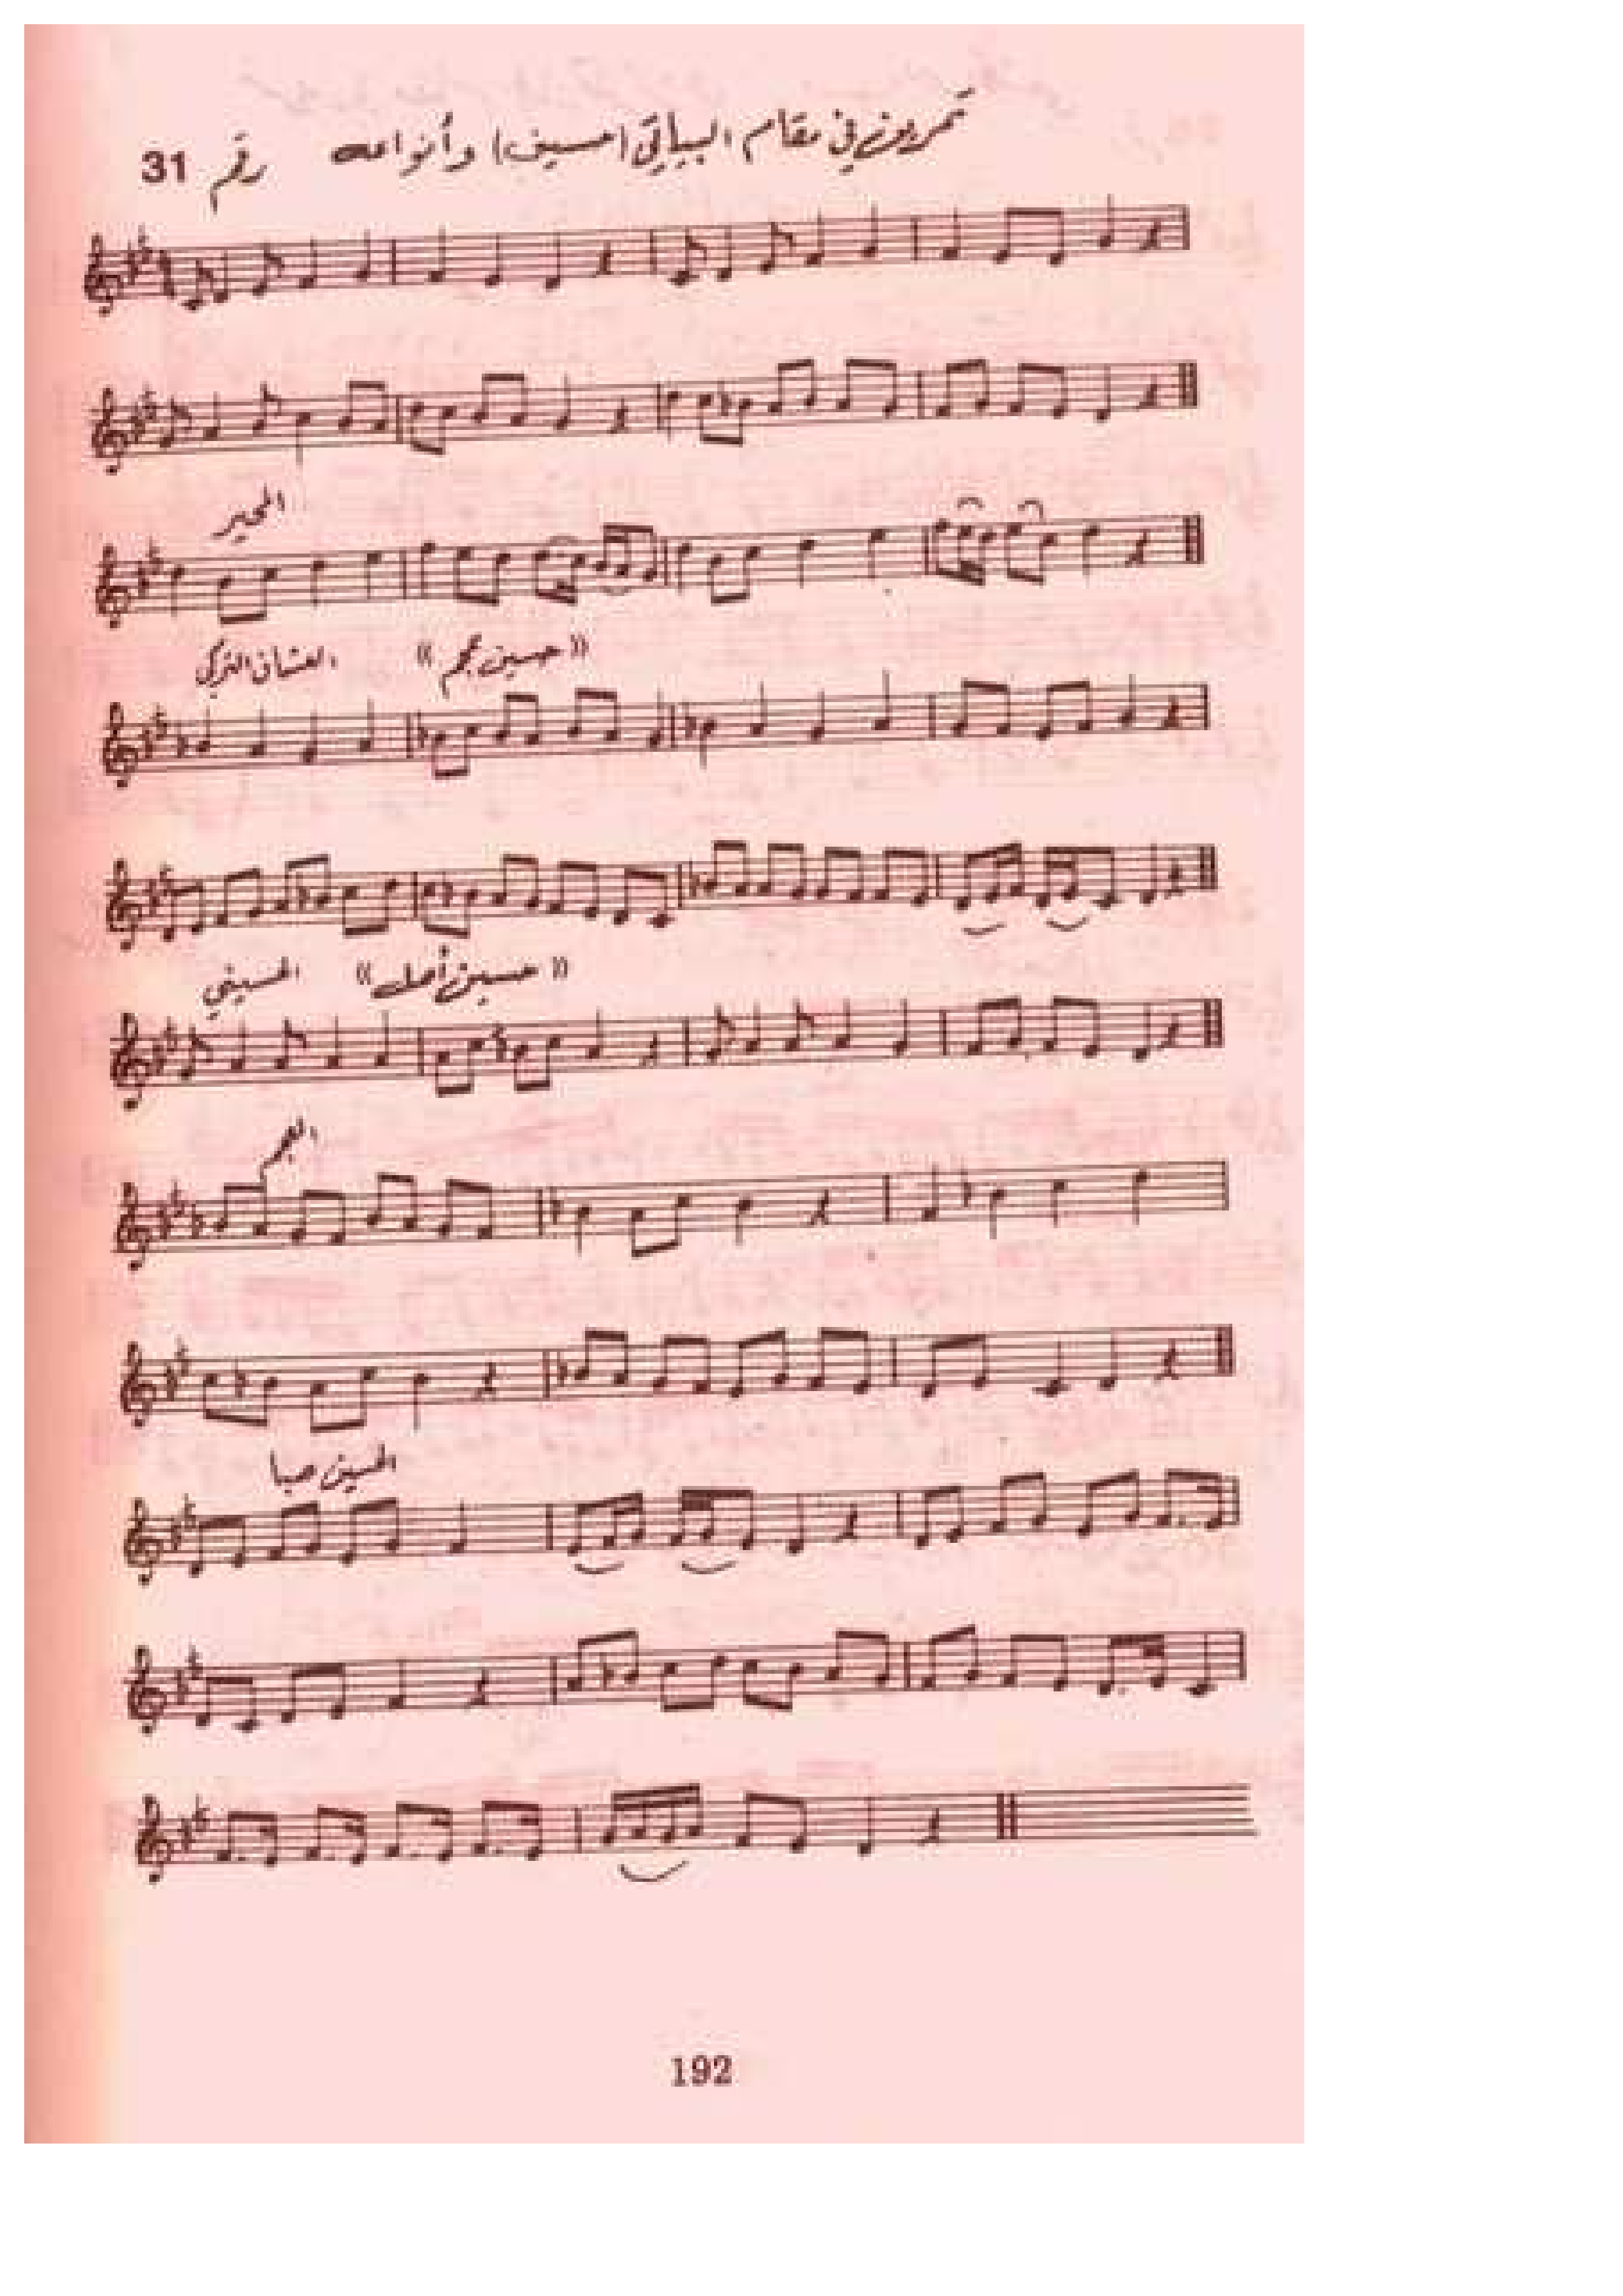 تمرين في مقام البياتي (حسين) وأنواعه رقم 31
المحير
العشاق التركي «حسين عجم»
الحسيني «حسين أصل»
العجم
الحسين صبا
192